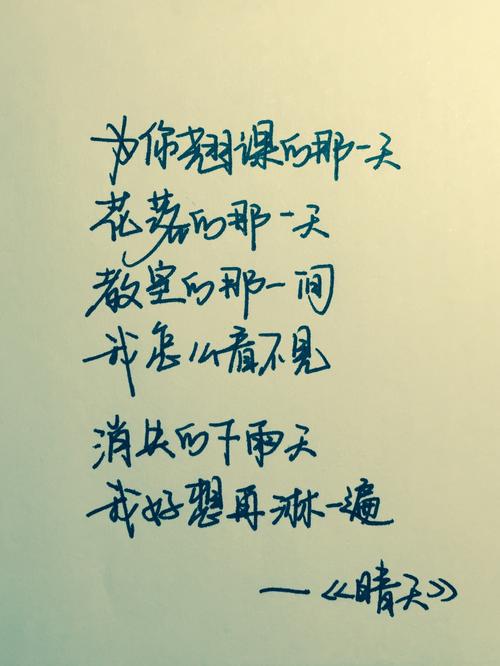 为你翘课的那一天
花落的那一天
教室的那一间
我怎么看不见
消失的下雨天
我好想再淋一遍
—《晴天》